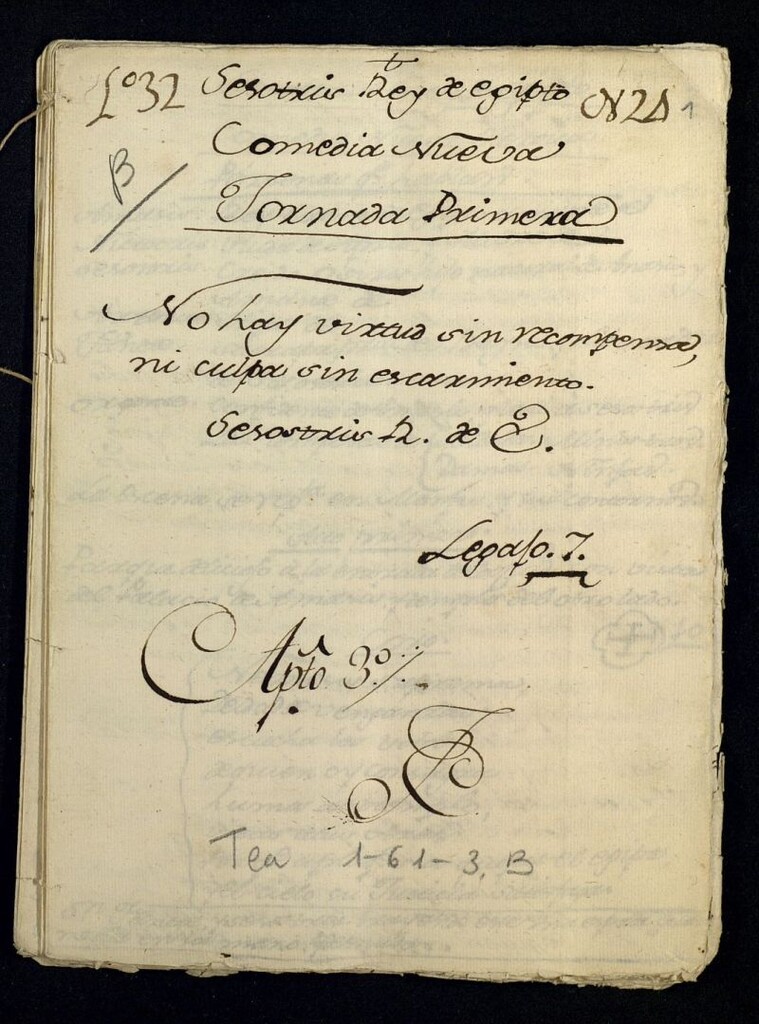 Lº 32 Sesotris Rey de egipto N 21 1
Comedia Nueva
B
Jornada Primera
No hay virtud sin recompensa,
ni culpa sin escarmiento.
Sesostris R. de E.
Legajo. 7.
Apto 3º
Tea 1-61-3, B